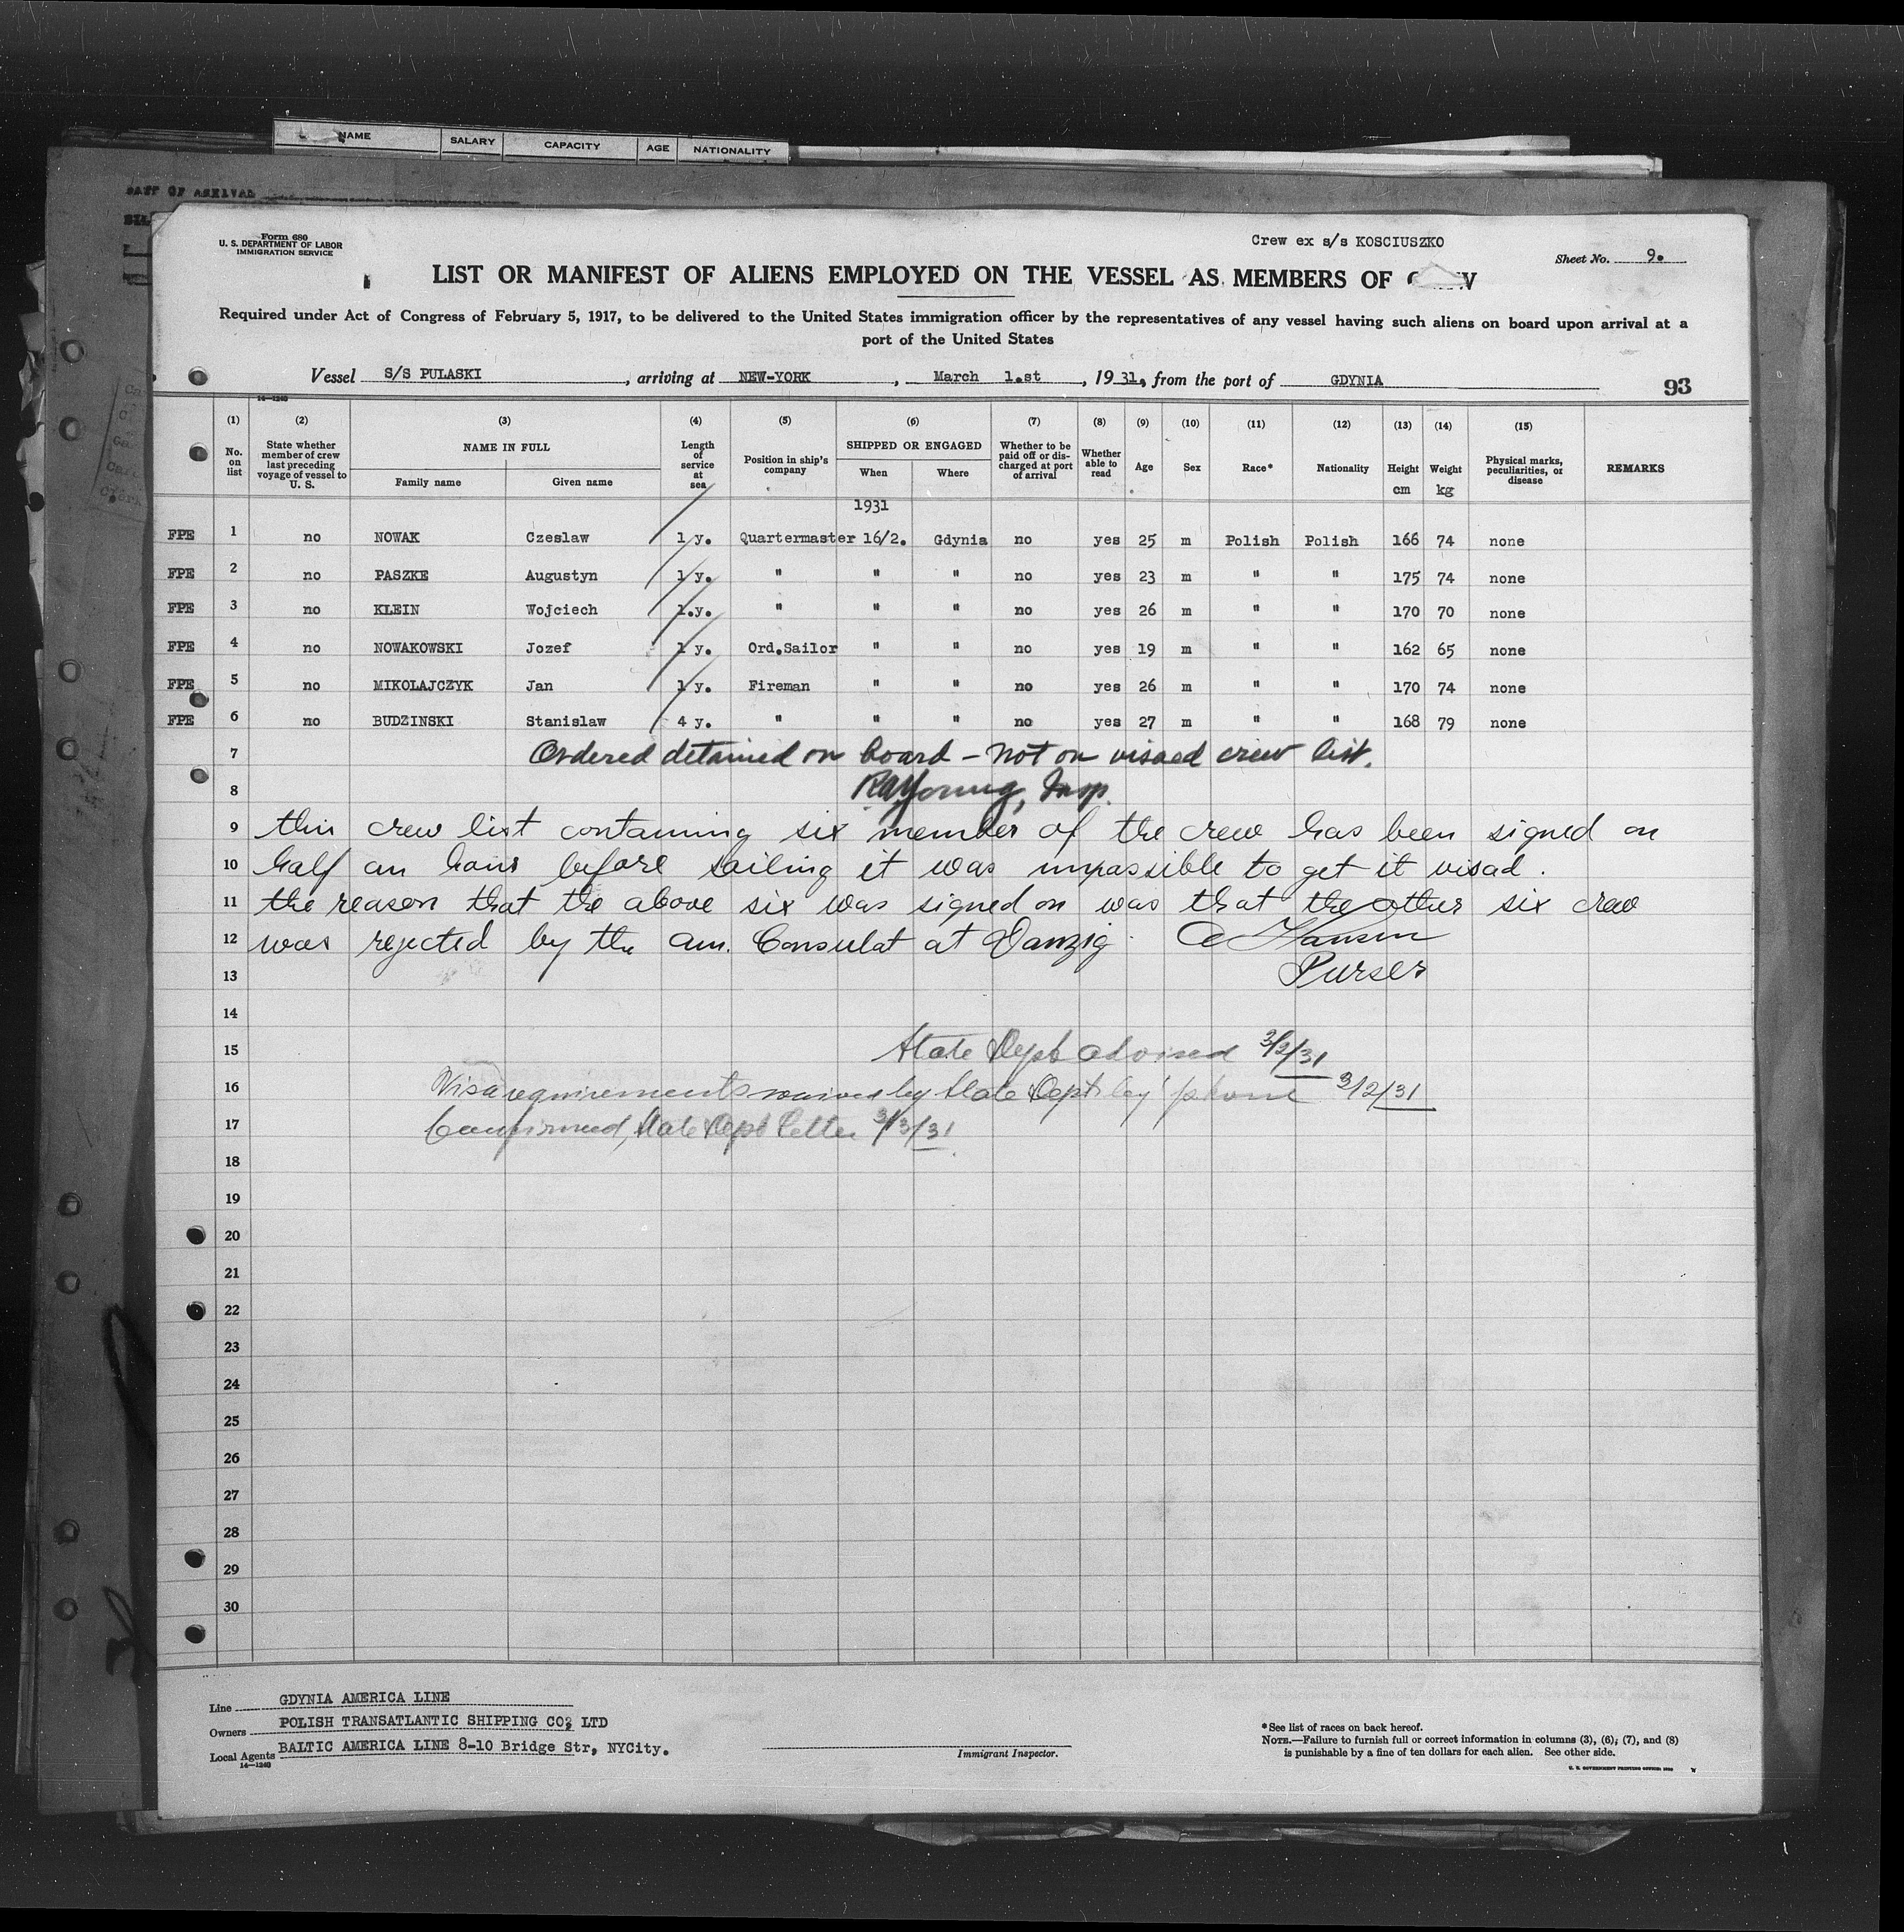 NAME SALARY CAPACITY AGE NATIONALITY
Form 680
U. S. DEPARTMENT OF LABOR
IMMIGRATION SERVICE
Crew ex s/s KOSCIUSZKO
Sheet No. 9.
LIST OR MANIFEST OF ALIENS EMPLOYED ON THE VESSEL AS MEMBERS OF
Required under Act of Congress of February 5, 1917, to be delivered to the United States immigration officer by the representatives of any vessel having such aliens on board upon arrival at a
port of the United States
Vessel S/S PULASKI, arriving at NEW-YORK, March 1.st, 1931, from the port of GDYNIA
93
14—1240
(1) (2) (3) (4) (5) (6) (7) (8) (9) (10) (11) (12) (13) (14) (15)
No. on list
State whether member of crew last preceding voyage of vessel to U. S.
NAME IN FULL
Family name Given name
Length of service at sea
Position in ship's company
SHIPPED OR ENGAGED
When Where
Whether to be paid off or discharged at port of arrival
Whether able to read
Age
Sex
Race*
Nationality
Height cm
Weight kg
Physical marks, peculiarities, or disease
REMARKS
1931
FPE 1 no NOWAK Czeslaw 1 y. Quartermaster 16/2. Gdynia no yes 25 m Polish Polish 166 74 none
FPE 2 no PASZKE Augustyn 1 y. " " " no yes 23 m " " 175 74 none
FPE 3 no KLEIN Wojciech 1.y. " " " no yes 26 m " " 170 70 none
FPE 4 no NOWAKOWSKI Jozef 1 y. Ord.Sailor " " no yes 19 m " " 162 65 none
FPE 5 no MIKOLAJCZYK Jan 1 y. Fireman " " no yes 26 m " " 170 74 none
FPE 6 no BUDZINSKI Stanislaw 4 y. " " " no yes 27 m " " 168 79 none
7 Ordered detained on board – not on visaed crew list.
8 RAYoung, Insp.
9 this crew list containing six member of the crew has been signed on
10 half an hour before sailing it was impossible to get it visad.
11 the reason that the above six was signed on was that the other six crew
12 was rejected by the am. Consulat at Danzig. Hansen
13 Purser
14
15 State Dept advised 3/2/31
16 Visa requirements waived by State Dept by 'phone 3/2/31
17 Confirmed, State Dept letter 3/3/31
18
19
20
21
22
23
24
25
26
27
28
29
30
Line GDYNIA AMERICA LINE
Owners POLISH TRANSATLANTIC SHIPPING CO, LTD
Local Agents BALTIC AMERICA LINE 8-10 Bridge Str, NYCity.
14—1240
Immigrant Inspector.
*See list of races on back hereof.
NOTE.—Failure to furnish full or correct information in columns (3), (6), (7), and (8)
is punishable by a fine of ten dollars for each alien. See other side.